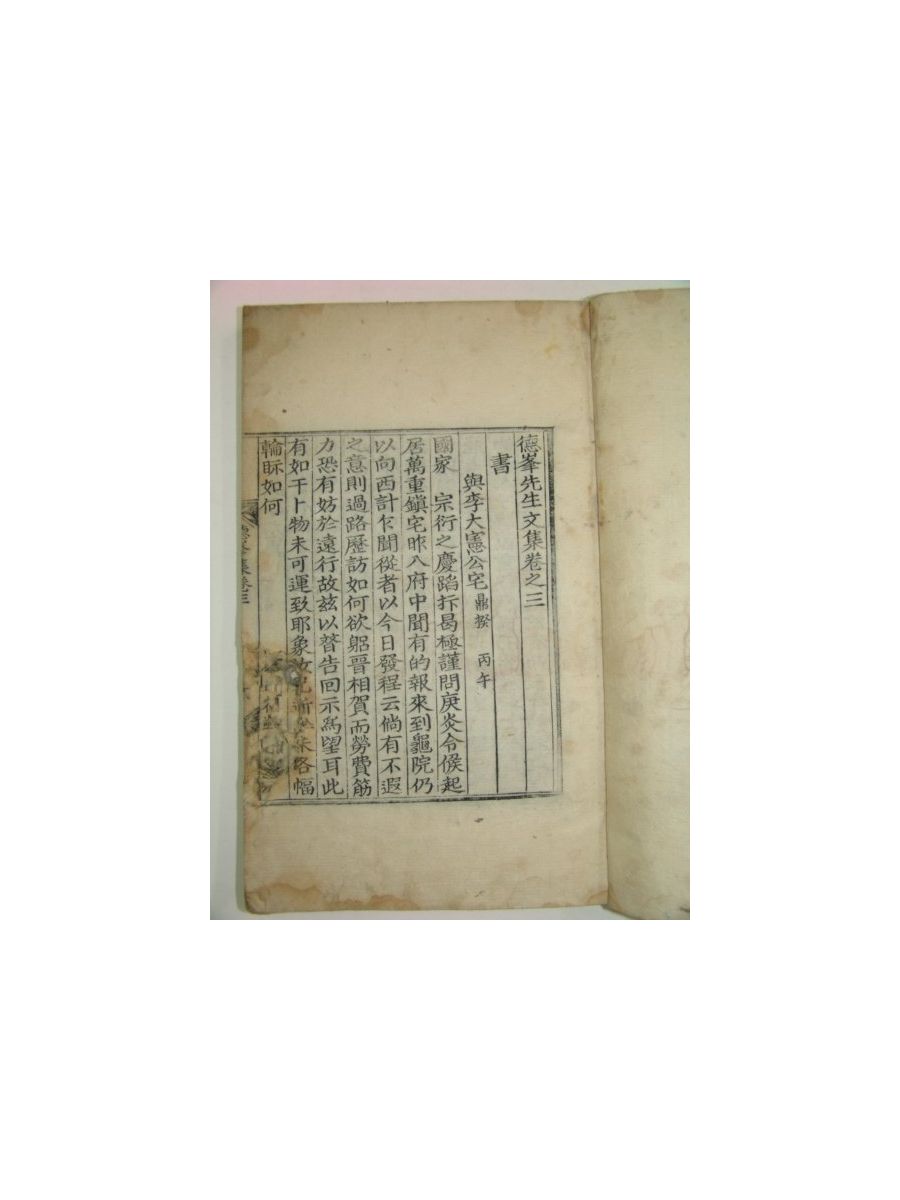 德峯先生文集卷之三
書
與李大憲公宅 鼎揆 丙午
國家 宗衍之慶蹈抃曷極謹問庚炎令候起
居萬重鎭宅昨入府中聞有的報來到龜院仍
以向西計乍聞從者以今日發程云倘有不遐
之意則過路歷訪如何欲躬晉相賀而勞費筋
力恐有妨於遠行故玆以瞀告回示爲望耳此
有如干卜物未可運致耶象
各幅
輪眎如何
集卷三